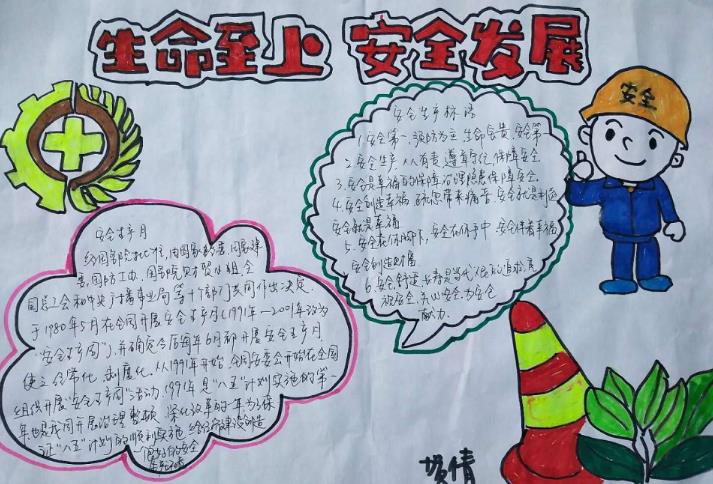 生命至上 安全发展
安全
安全生产标语
1.安全第一，预防为主，生命宝贵，安全第
2.安全生产，人人有责，遵章守纪，保障安全
3.安全是幸福的保障，治理隐患保障安全。
4.安全创造幸福，疏忽带来痛苦，安全就是
安全就是幸福
5.安全在你脚下，安全在你手中，安全伴着幸福
安全创造财富
6.安全
献力.
安全生产月
经国务院批准，由国家经委、国家建
委、国防工办、国务院财贸小组、全
国总工会和中央广播事业局等十个部门共同作出决定，
于1980年5月在全国开展安全生产月（1991年—2001年改为
"安全生产周"），并确定今后每年6月都开展安全生产月
使之经常化、制度化。从1991年开始，全国安委会开始在全国
组织开展"安全生产周"活动。1991年是"八五"计划实施的第一
年，也是我国开展治理整顿、深化改革的一年，为了保
证"八五"计划的顺利实施，给经济建设创造
良好的安全
倩